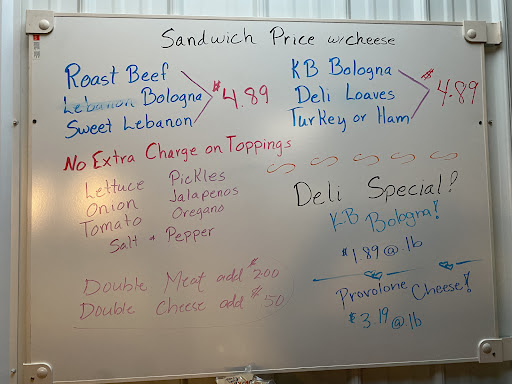 Sandwich Price w/cheese
Roast Beef
Lebanon Bologna
Sweet Lebanon
$4.89
KB Bologna
Deli Loaves
Turkey or Ham
$4.89
No Extra Charge on Toppings
Lettuce Pickles
Onion Jalapenos
Tomato Oregano
Salt & Pepper
Double Meat add $200
Double Cheese add $50
Deli Special!
KB Bologna!
$1.89@lb
Provolone Cheese!
$3.19@lb